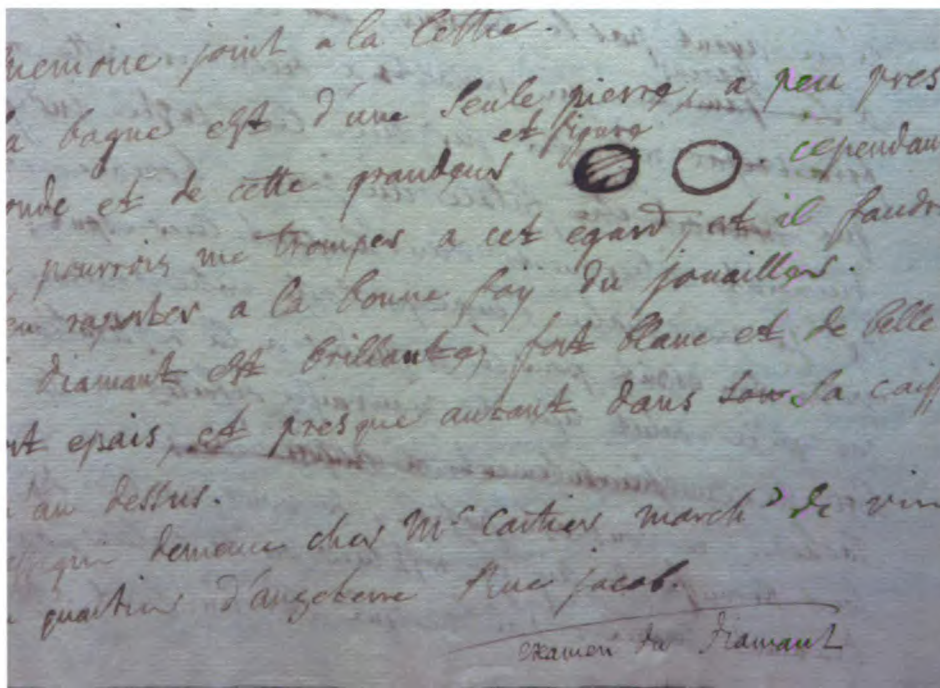 memoire joint a la lettre.
la bague est d'une seule pierre, a peu pres
onde et de cette grandeur et figure cependan
pourrois me tromper a cet egard, et il faudr
en raporter a la bonne foy du jouaillier.
diamant est brillanté, fort blanc et de belle
nt epais, et presque autant dans son la caiss
au dessus.
qui demeure chez Mr cartier march d de vin
quartier d'angleterre Rue jacob.
examen du diamant